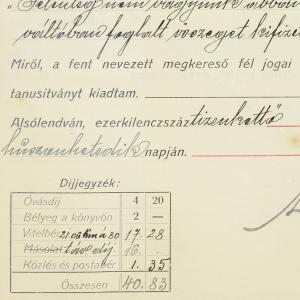 „Jelenleg nem vagyunk abban
váltóban foglalt összeget kifize
Miről, a fent nevezett megkereső fél jogai
tanusitványt kiadtam.
Alsólendván, ezerkilenczszáz tizenkettő
huszonhetedik napján.
Díjjegyzék:
Óvásdíj 4 20
Bélyeg a könyvön 2 —
Vitelbér 21.06 km á 80 17. 28
Másolat távdíj 16. -
Közlés és postabér 1. 35
Összesen 40. 83